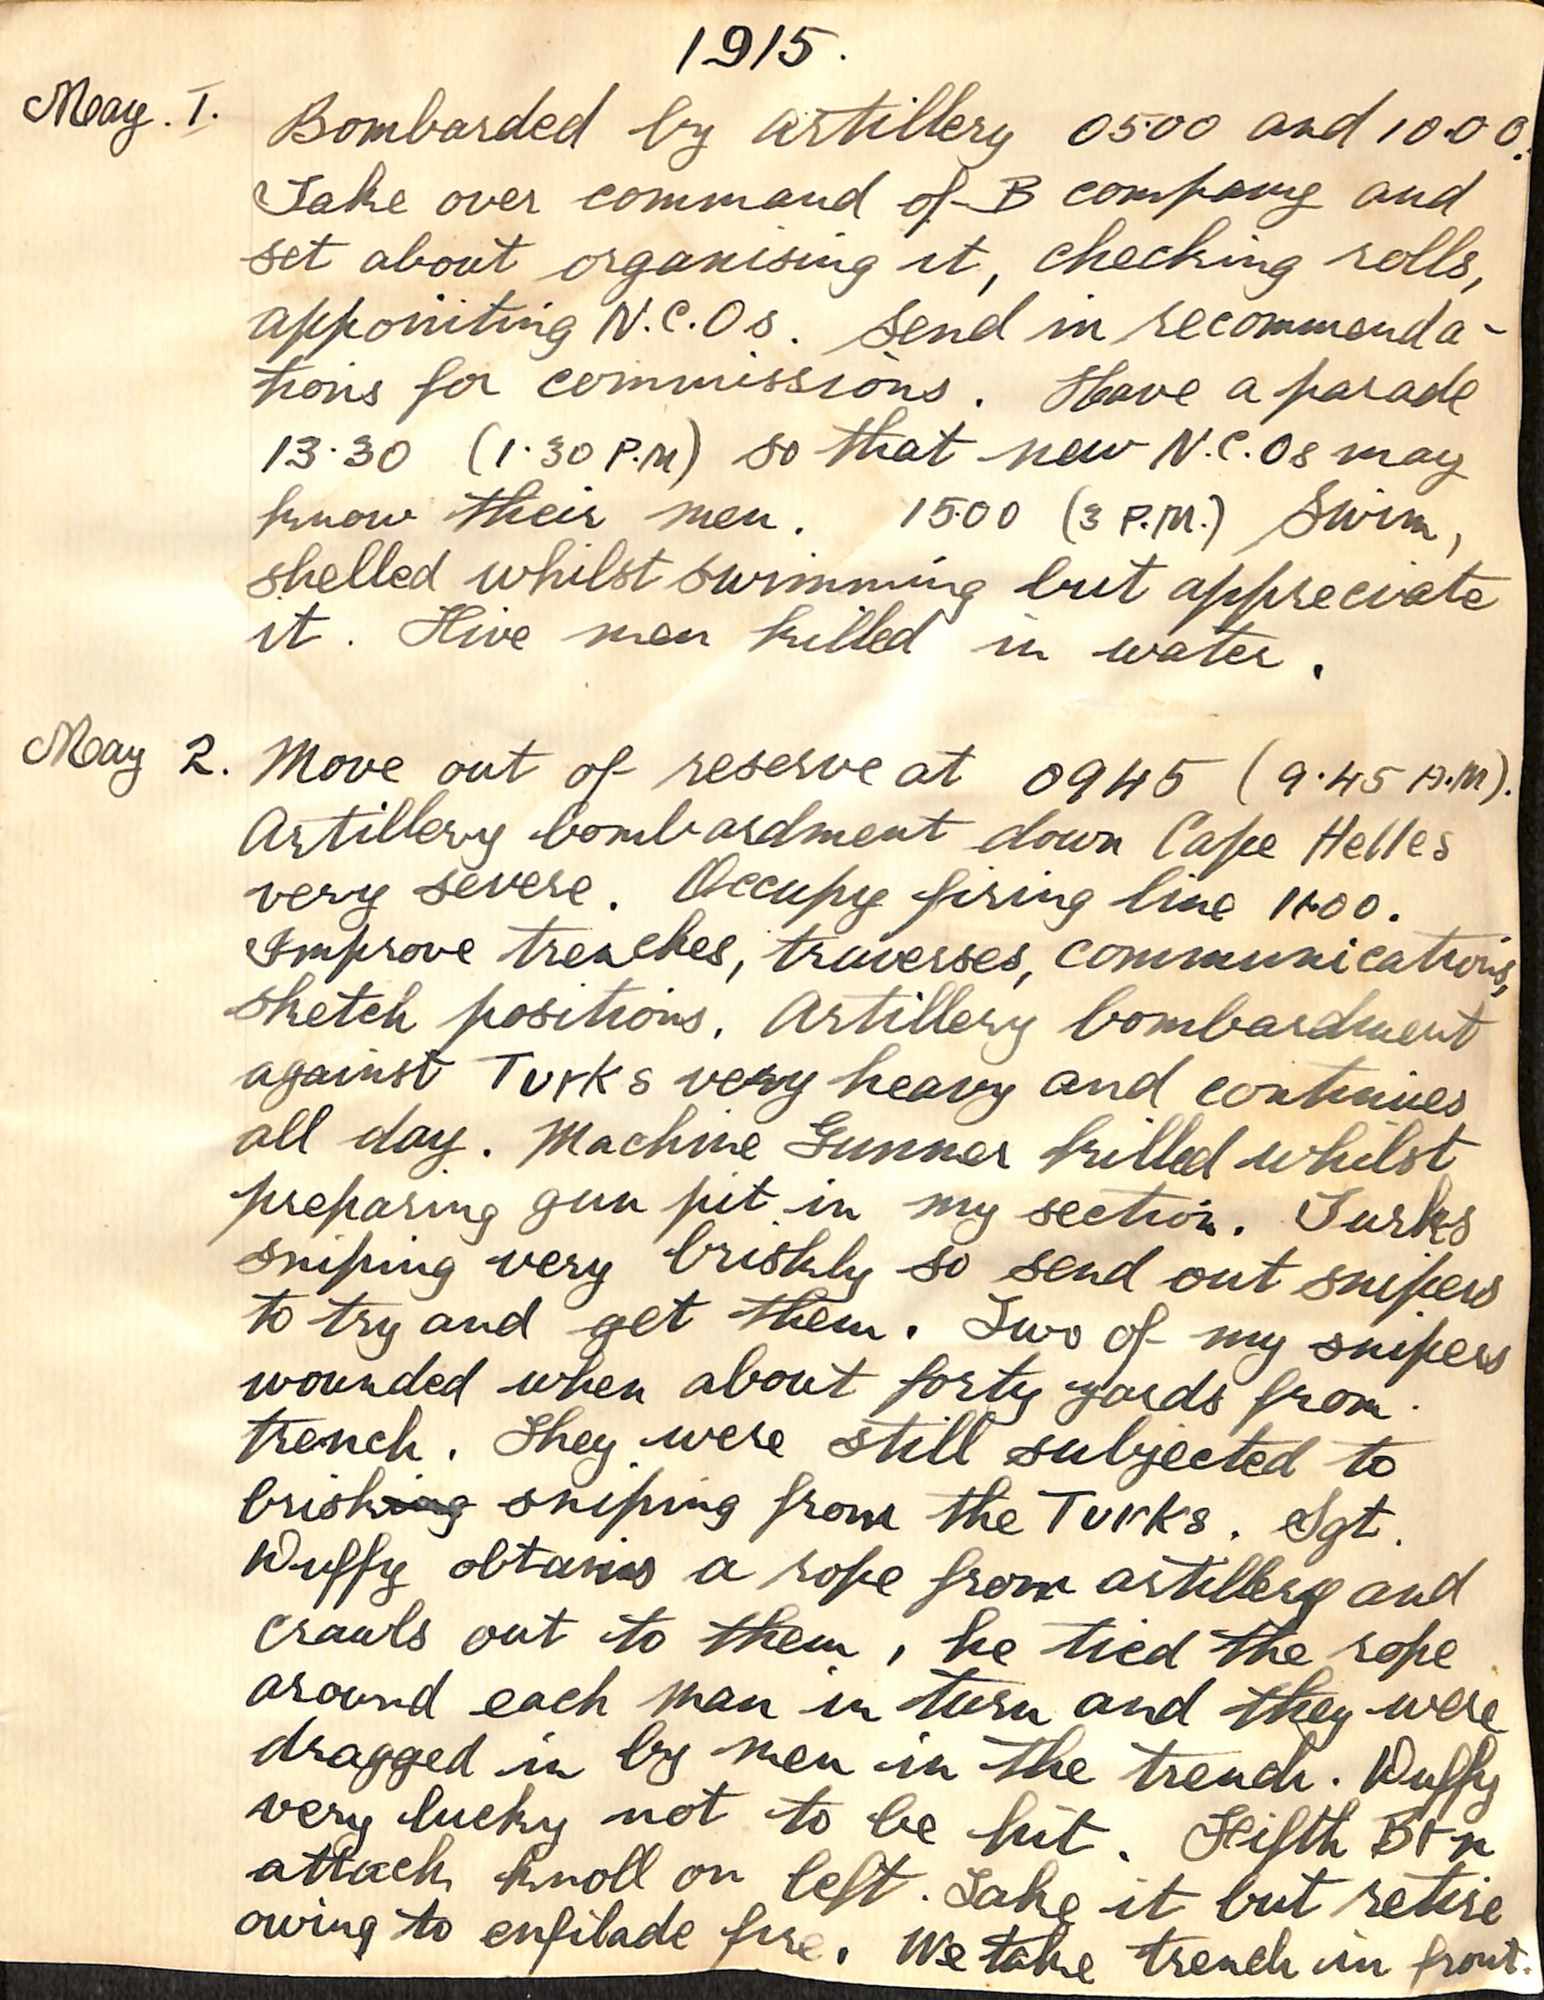 1915.
May. 1. Bombarded by artillery 0500 and 10.00.
Take over command of B company and
set about organising it, checking rolls,
appointing N.C.Os. Send in recommenda-
tions for commissions. Have a parade
13.30 (1.30 P.M) so that new N.C.Os may
know their men. 1500 (3 P.M.) Swim,
shelled whilst swimming but appreciate
it. Five men killed in water.
May 2. Move out of reserve at 0945 (9.45 A.M).
Artillery bombardment down Cape Helles
very severe. Occupy firing line 1100.
Improve trenches, traverses, communications,
sketch positions. Artillery bombardment
against Turks very heavy and continues
all day. Machine Gunner killed whilst
preparing gun pit in my section. Turks
sniping very briskly so send out snipers
to try and get them. Two of my snipers
wounded when about forty yards from
trench. They were still subjected to
brisking sniping from the Turks. Sgt.
Duffy obtains a rope from artillery and
crawls out to them, he tied the rope
around each man in turn and they were
dragged in by men in the trench. Duffy
very lucky not to be hit. Fifth Btn
attack knoll on left. Take it but retire
owing to enfilade fire. We take trench in front.